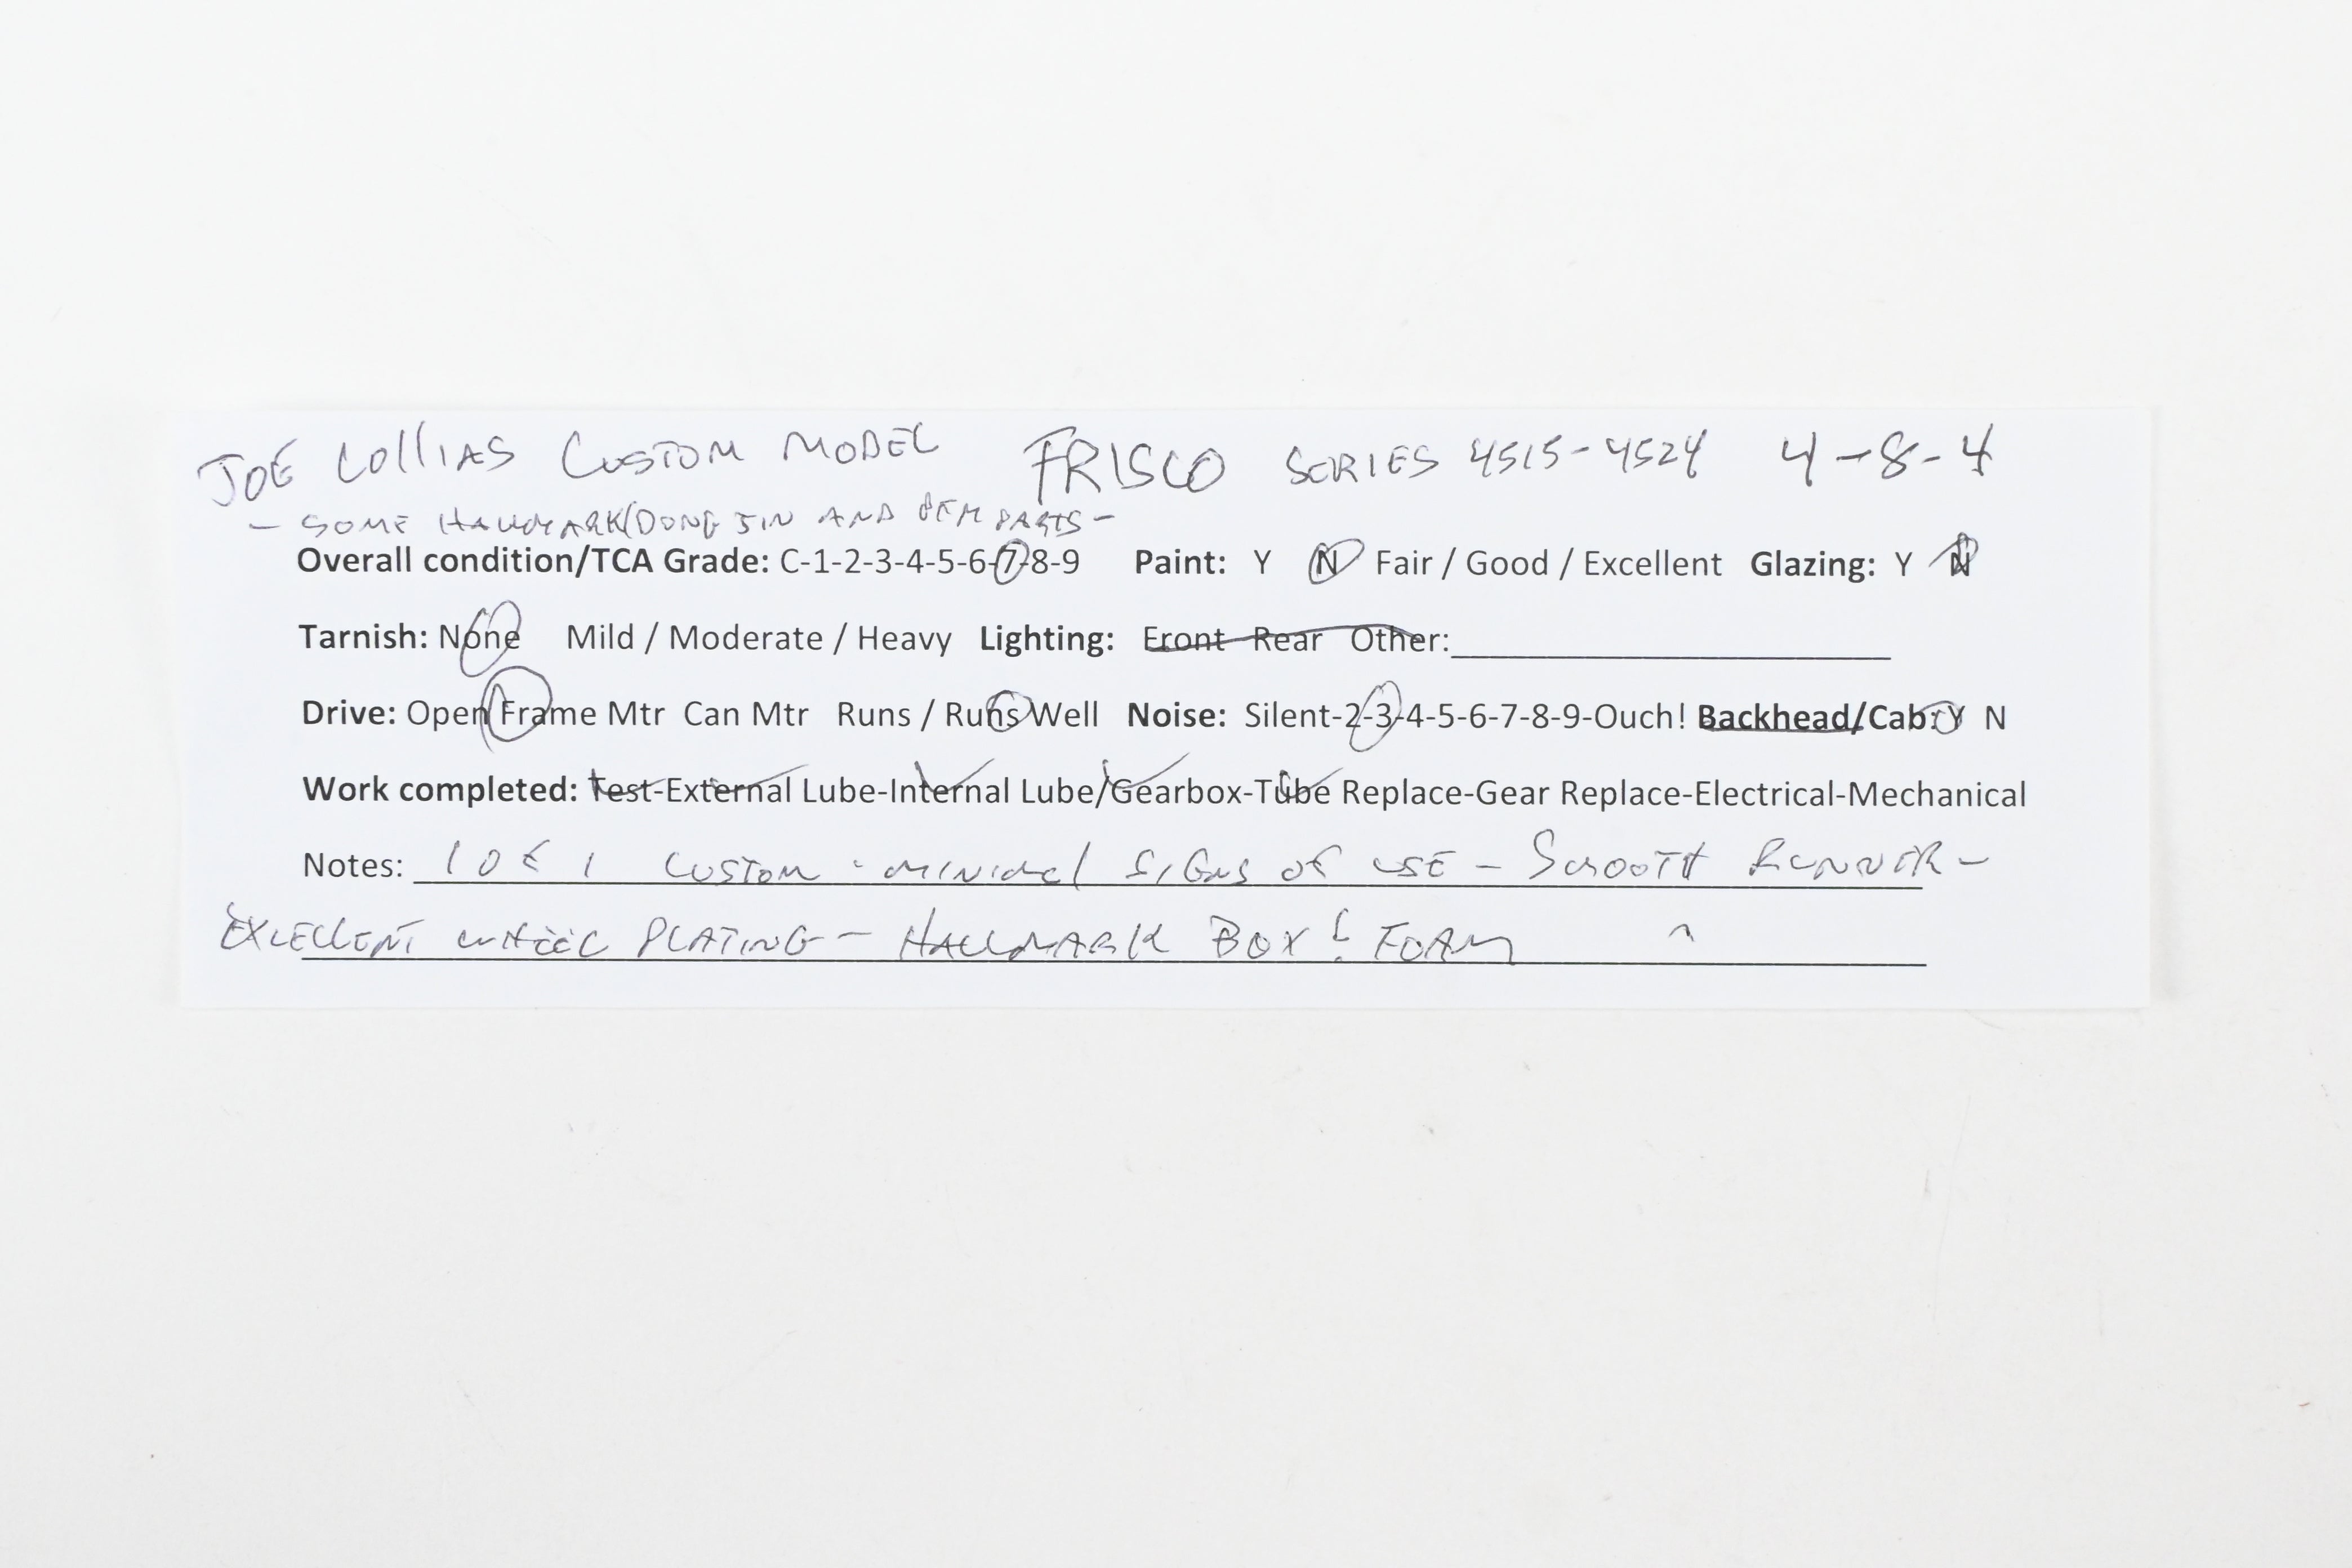 JOE COLLIAS CUSTOM MODEL FRISCO SERIES 4515-4524 4-8-4
- SOME HALLMARK/DONG JIN AND PARTS -
Overall condition/TCA Grade: C-1-2-3-4-5-6-7-8-9 Paint: Y N Fair / Good / Excellent Glazing: Y N
Tarnish: None Mild / Moderate / Heavy Lighting: Front Rear Other:
Drive: Open Frame Mtr Can Mtr Runs / Runs Well Noise: Silent-2-3-4-5-6-7-8-9-Ouch! Backhead/Cab: Y N
Work completed: Test-External Lube-Internal Lube/Gearbox-Tube Replace-Gear Replace-Electrical-Mechanical
Notes: 1 OF 1 CUSTOM - MINIMAL SIGNS OF USE - SMOOTH RUNNER -
EXCELLENT WHEEL PLATING - HALLMARK BOX & FOAM